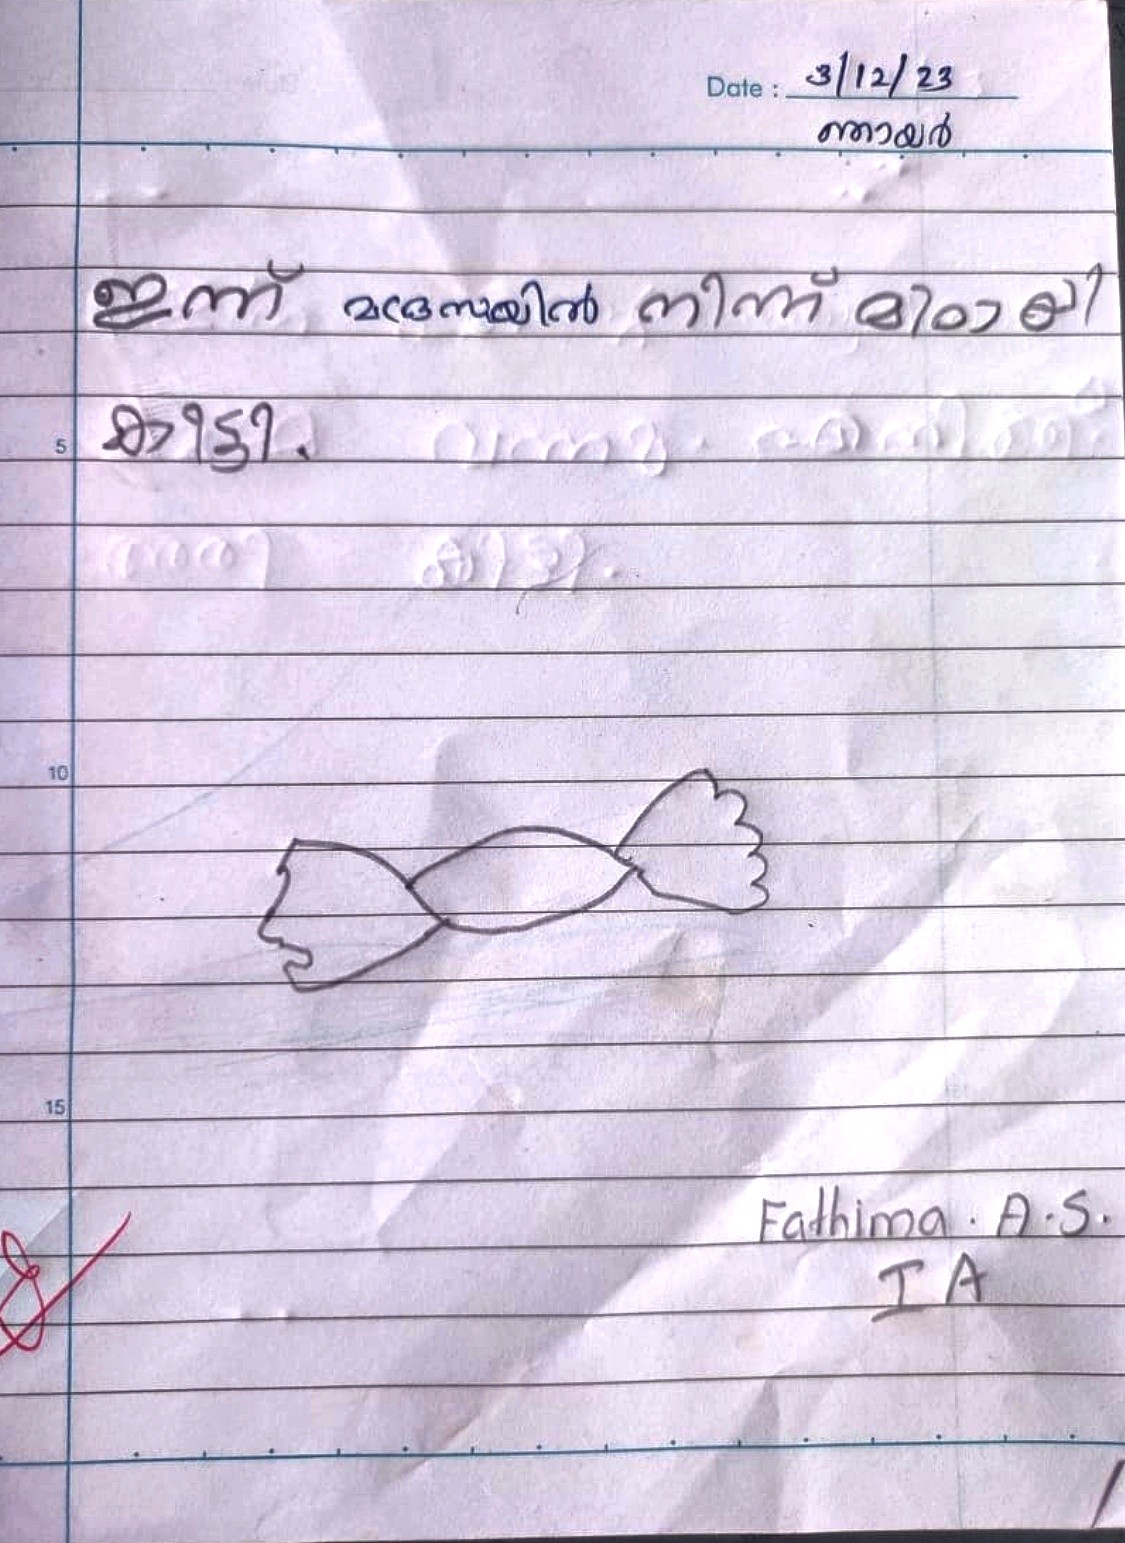 Date : 3/12/23
ഞായർ
ഇന്ന് മദ്രസയിൽ നിന്ന് മിഠായി
കിട്ടി.
5
10
15
Fathima . A.S.
I A